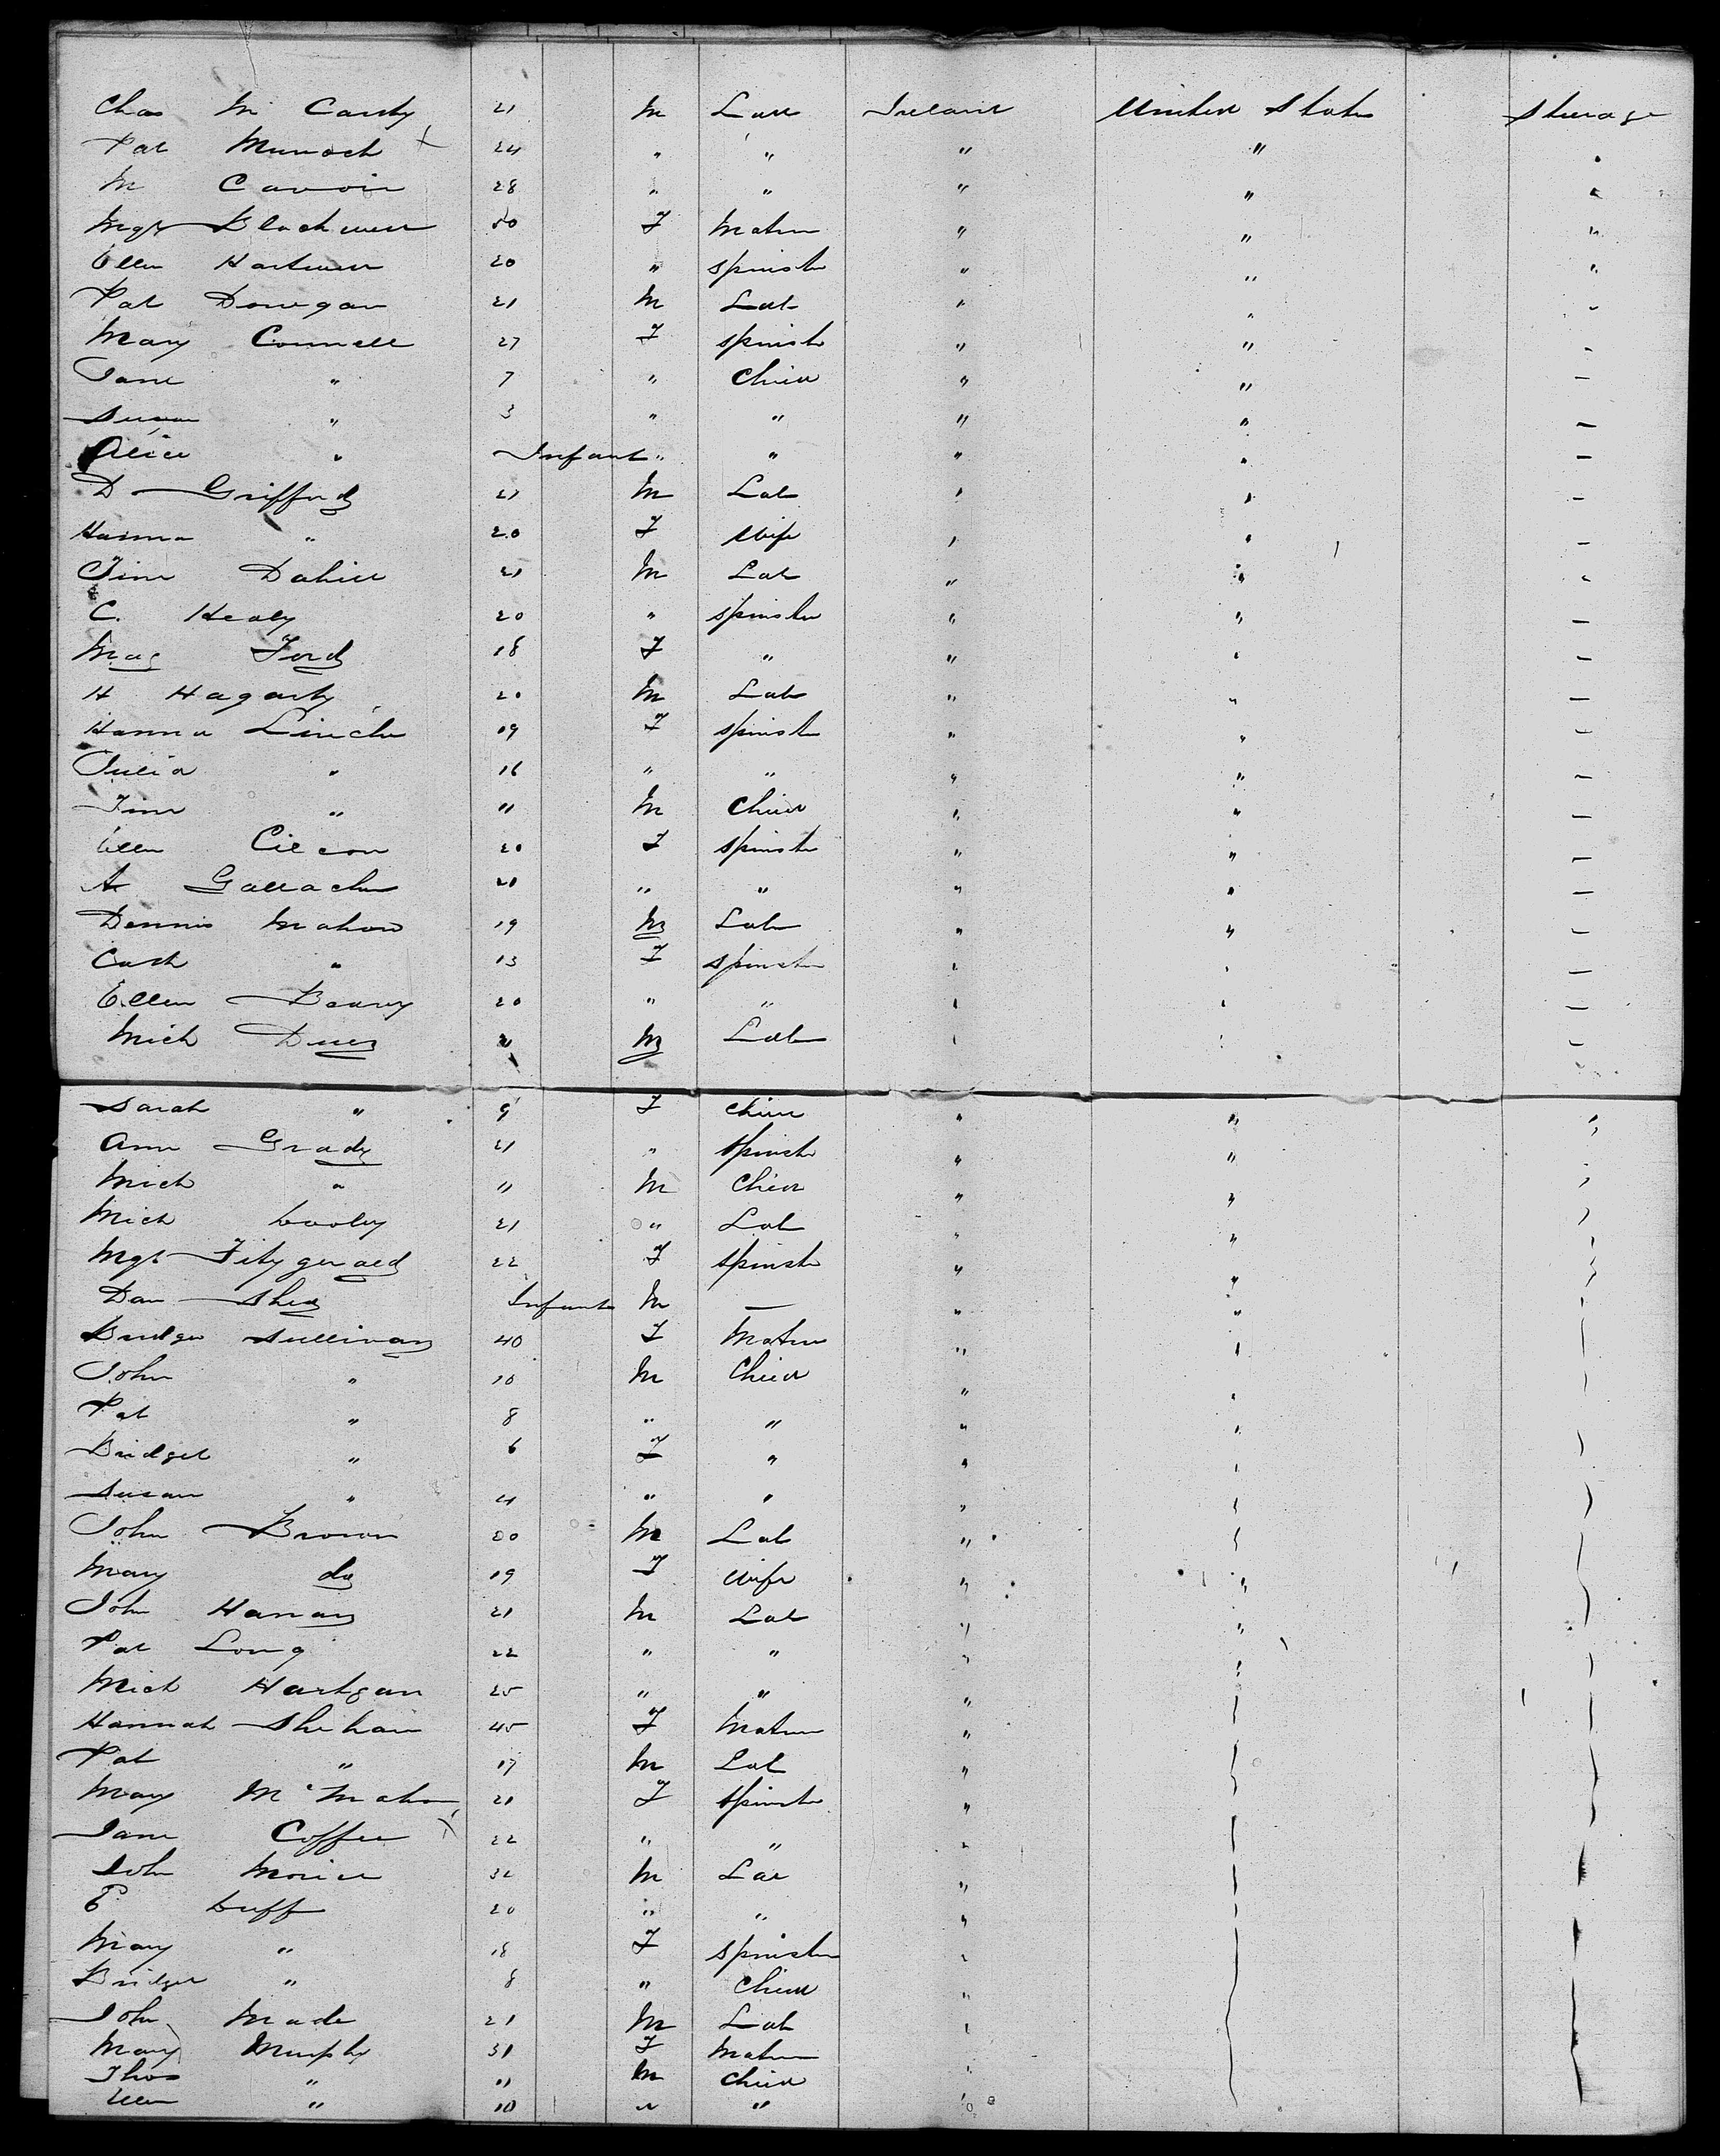 Chas Mc Carthy 21 M Lab Ireland United States Steerage
Pat Murnoch X 24 " " " " "
M Cavoin 28 " " " " "
Mgt Blackwell 50 F Matron " " "
Ellen Hartwell 20 " Spinster " " "
Pat Donegan 21 M Lab " " "
Mary Connell 27 F Spinster " " "
Jane " 7 " Child " " "
Susan " 3 " " " " "
Alice " Infant " " " " "
D Grifford 21 M Lab " " "
Hanna " 20 F Wife " " "
Tim Dahill 21 M Lab " " "
C. Healy 20 " Spinster " " "
Mag Ford 18 F " " " "
H Hagarty 20 M Lab " " "
Hanna Linch 19 F Spinster " " "
Julia " 16 " " " " "
Tim " 11 M Child " " "
Ellen 20 F Spinster " " "
A Gallacher 21 " " " " "
Dennis Mahon 19 M Lab " " "
Cath " 13 F Spinster " " "
Ellen 20 " " " " "
Mich M Lab " " "
Sarah " 9 F Child " " "
Ann Grady 21 " Spinster " " "
Mich " 11 M Child " " "
Mich Cooley 21 " Lab " " "
Mgt Fitzgerald 22 F Spinster " " "
Dan Shea Infant M — " " "
Bridget Sullivan 40 F Matron " " "
John " 10 M Child " " "
Pat " 8 " " " " "
Bridget " 6 F " " " "
Susan " 4 " " " " "
John Brown 20 M Lab " " "
Mary do 19 F Wife " " "
John 21 M Lab " " "
Pat Long 22 " " " " "
Mich Hartgan 25 " " " " "
Hannah Shehan 45 F Matron " " "
Pat " 17 M Lab " " "
Mary McMahon 21 F Spinster " " "
Jane Coffee X 22 " " " " "
John 32 M Lab " " "
E Cuff 20 " " " " "
Mary " 18 F Spinster " " "
Bridget " 8 " Child " " "
John Made 21 M Lab " " "
Mary Murphy 31 F Matron " " "
Thos " 11 M Child " " "
Ellen " 10 " " " " "